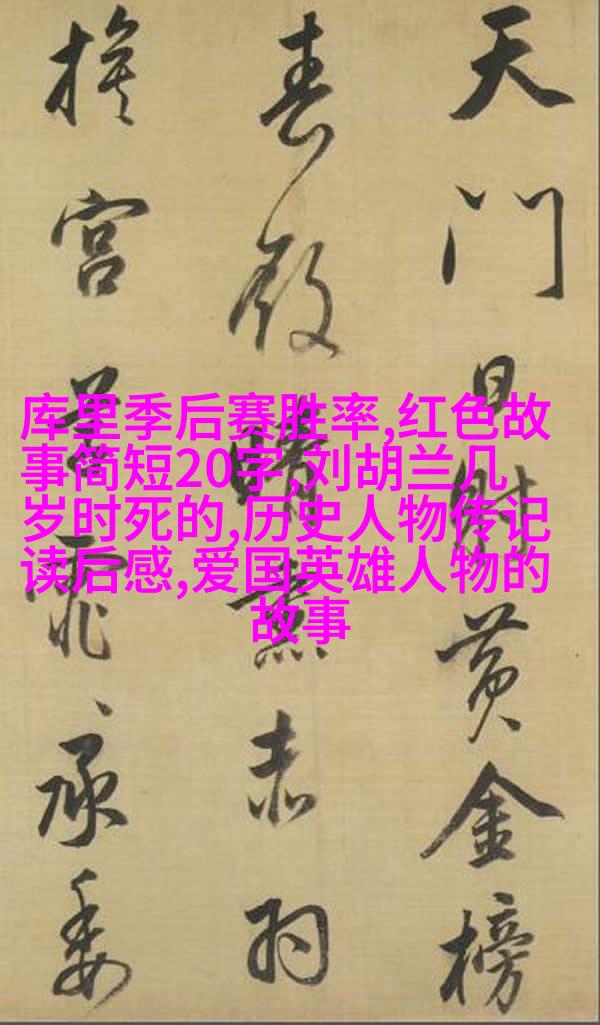 天門日射黃金榜
春殿晴熏赤羽
宮草霏〻承委
库里季后赛胜率,红色故
事简短20字,刘胡兰几
岁时死的,历史人物传记
读后感,爱国英雄人物的
故事